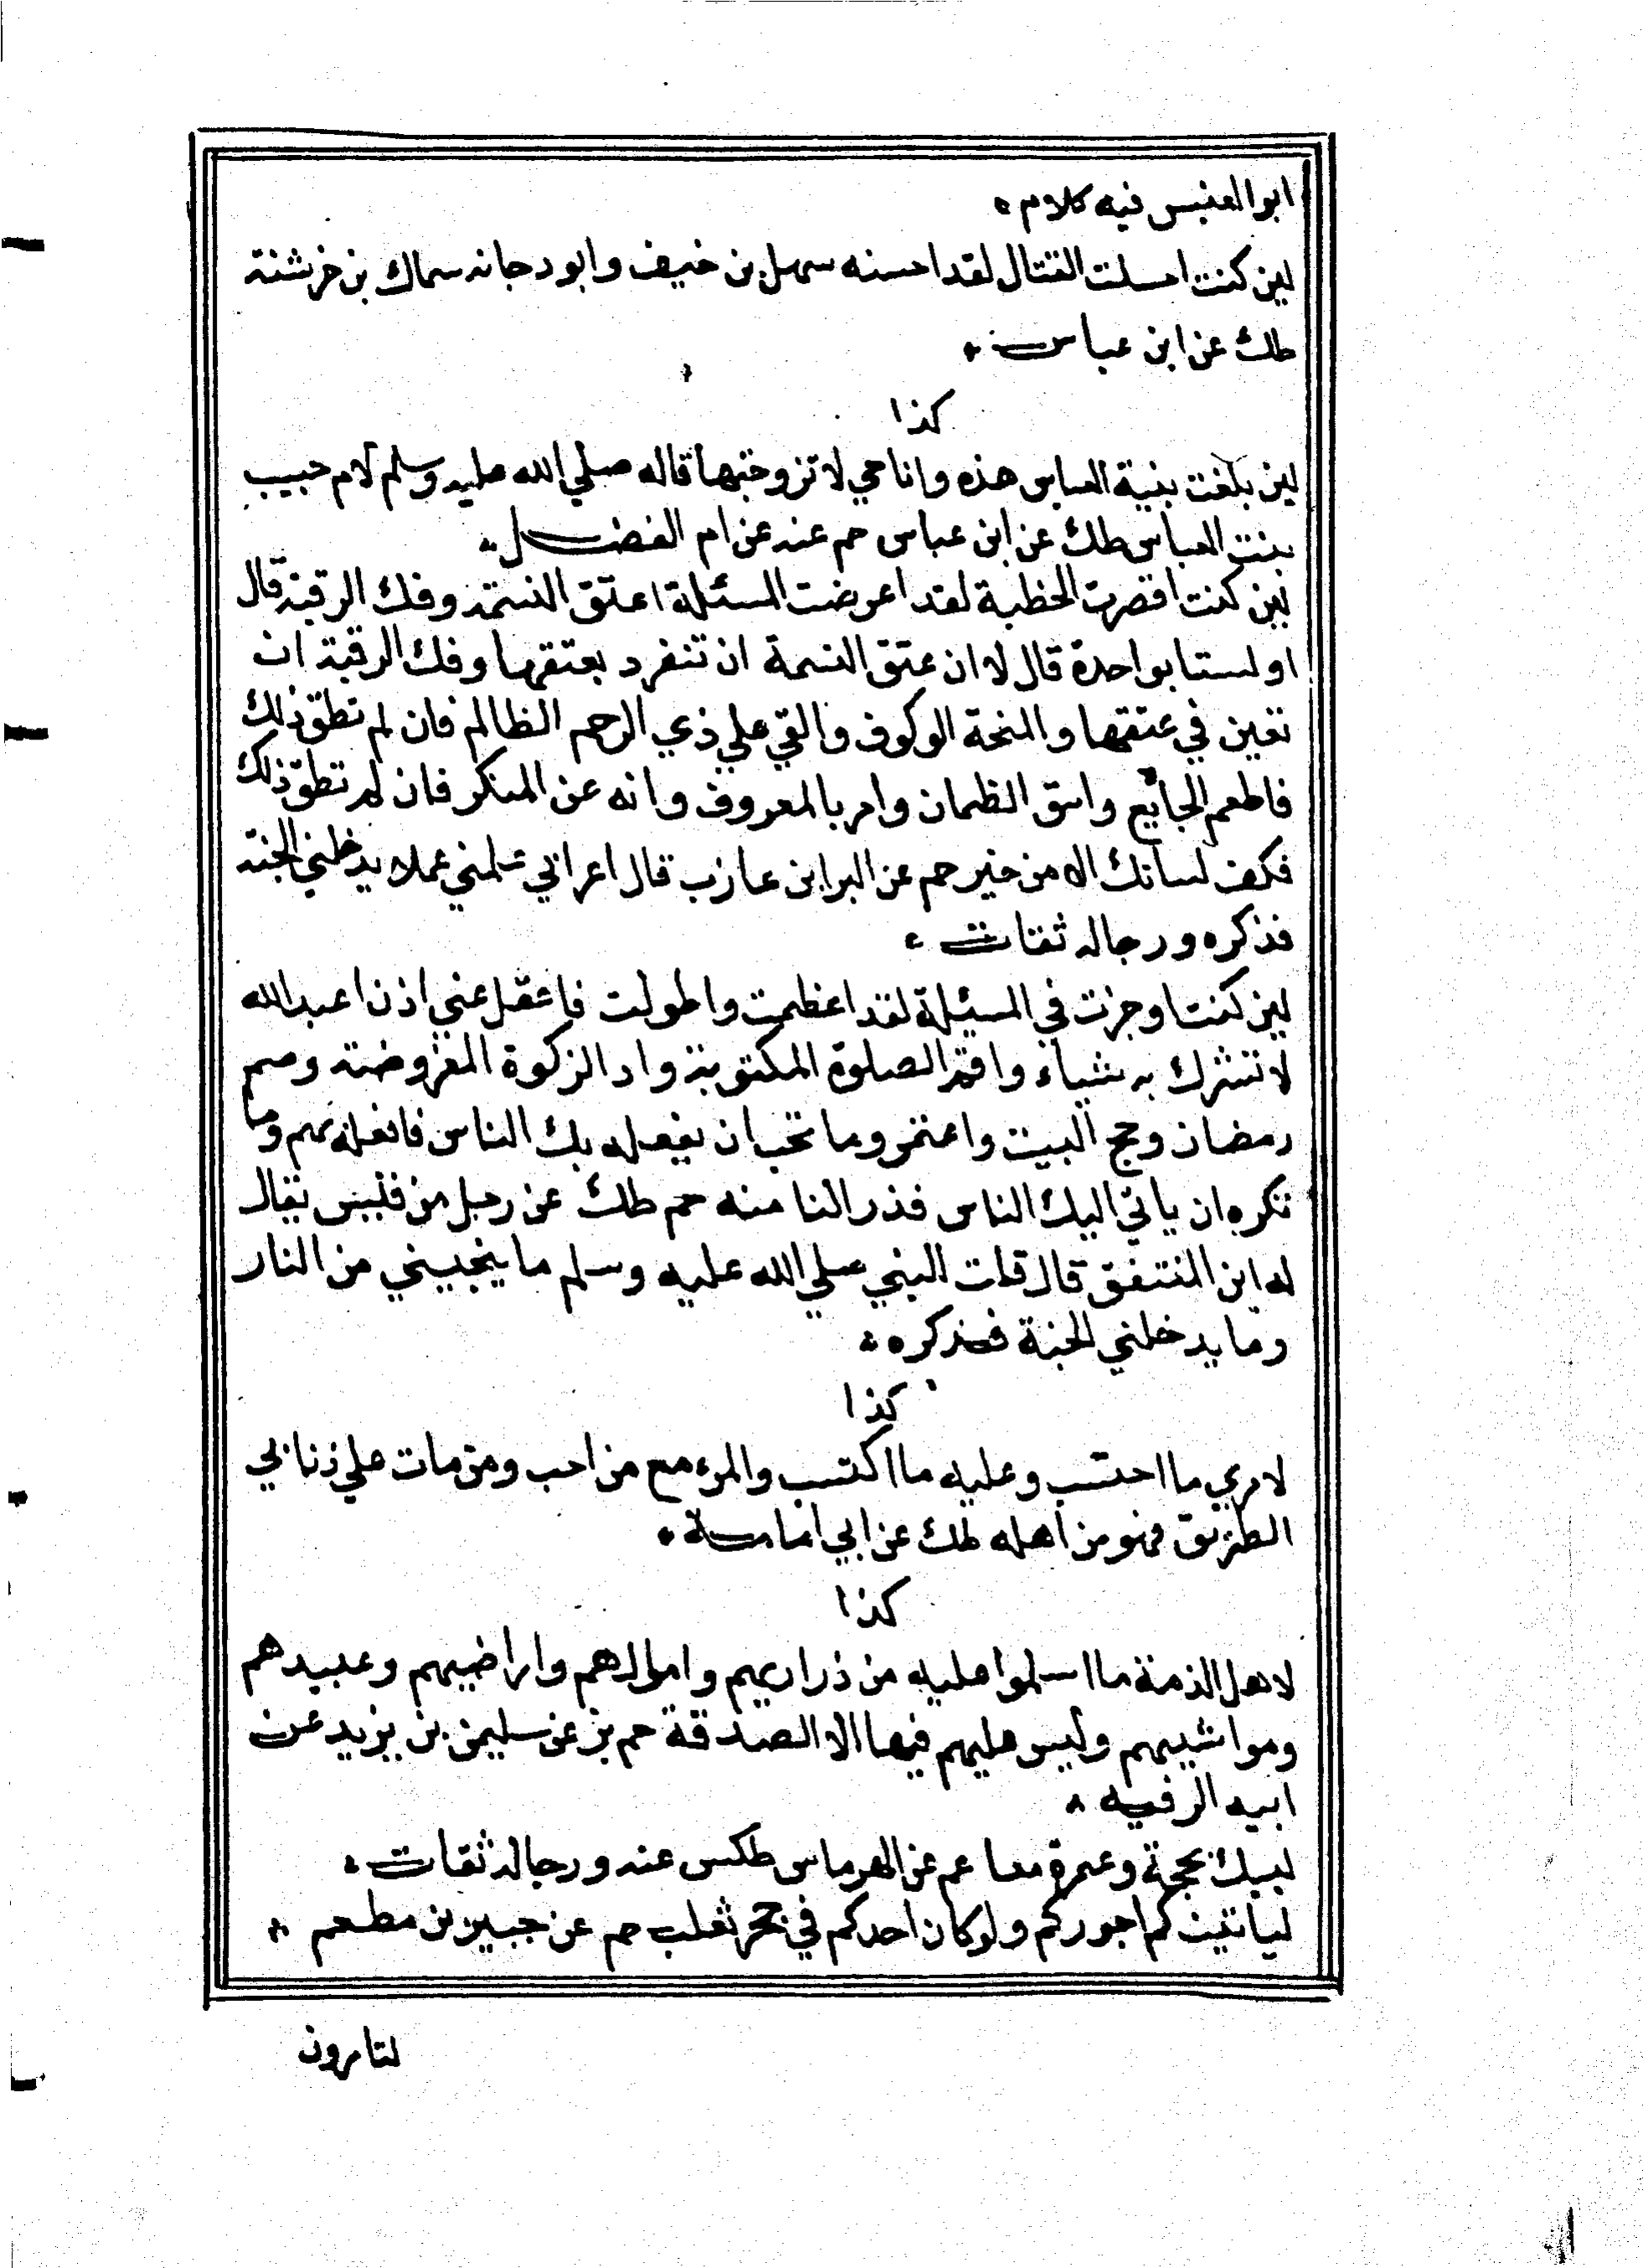 ابو العنبس فيه كلام
لين كنت احسنت القتال لقد احسنه سهل بن حنيف وابو دجانه سماك بن خرشنة
طك عن ابن عباس
كذا
لين بلغت بنية العباس هذه وانا حي لاتزوجنها قاله صلي الله عليه وسلم لام حبيب
بنت العباس طك عن ابن عباس حم عنه عن ام الفضل
لين كنت اقصرت الخطبة لقد اعرضت المسئلة اعتق النسمة وفك الرقبة قال
اوليستا بواحدة قال لا ان عتق النسمة ان تنفرد بعتقها وفك الرقبة ان
تعين في عتقها والمنحة الوكوف والقي علي ذي الرحم الظالم فان لم تطق ذلك
فاطعم الجايع واسق الظمان وامر بالمعروف وانه عن المنكر فان لم تطق ذلك
فكف لسانك الا من خير حم عن البرا بن عازب قال اعرابي علمني عملا يدخلني الجنة
فذكره ورجاله ثقات
لين كنت اوجزت في المسئلة لقد اعظمت واطولت فاعقل عني اذن اعبد الله
لا تشرك به شياء واقم الصلوة المكتوبة واد الزكوة المفروضة وصم
رمضان وحج البيت واعتمر وما تحب ان يفعله بك الناس فافعله بهم وما
تكره ان ياتي اليك الناس فذر النا منه حم طك عن رجل من قيس يقال
له ابن المنتفق قال قلت النبي صلي الله عليه وسلم ما ينجيني من النار
وما يدخلني الجنة فذكره
كذا
لامري ما احتسب وعليه ما اكتسب والمرء مع من احب ومن مات علي ذنابي
الطريق فهو من اهله طك عن ابي امامة
كذا
لاهل الذمة ما اسلموا عليه من ذراريهم واموالهم واراضيهم وعبيدهم
ومواشيهم وليس عليهم فيها الا الصدقة حم بز عن سليمن بن يزيد عن
ابيه
لبيك بحجة وعمرة معا عم عن الهرماس طكس عنه ورجاله ثقات
لياتينكم اجوركم ولو كان احدكم في جحر ثعلب حم عن جبير بن مطعم
لتامرون